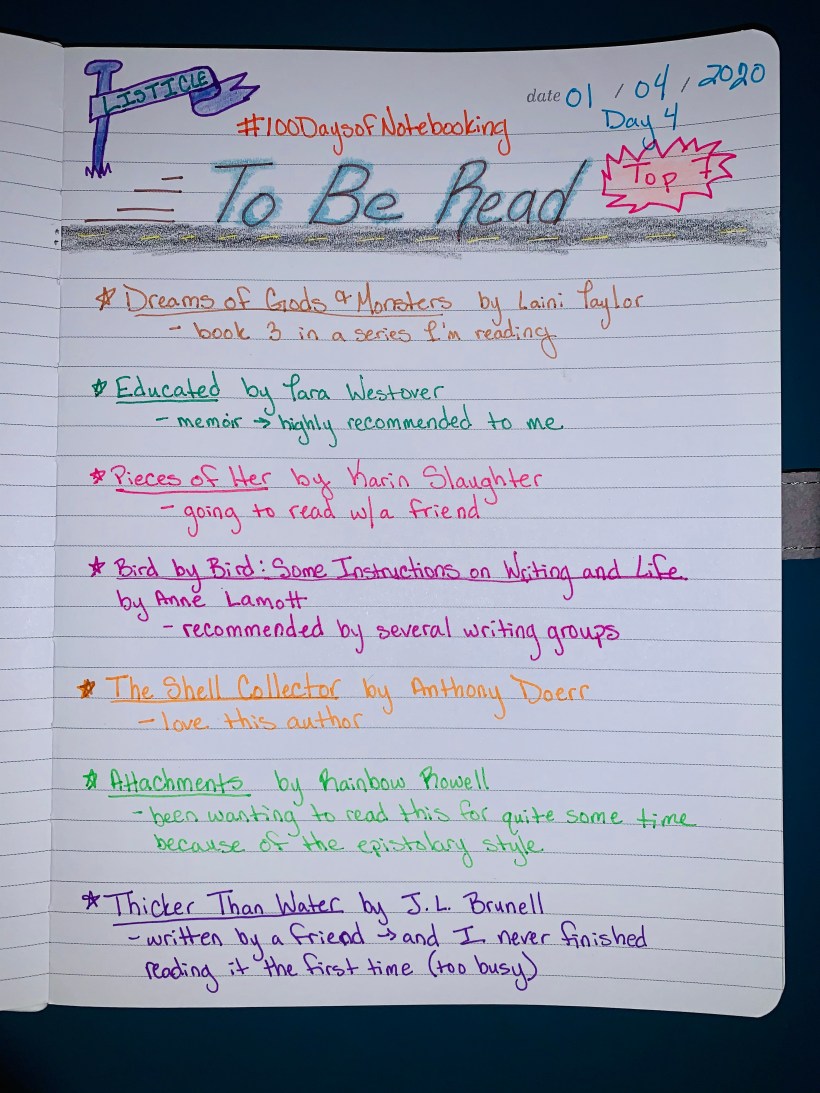 LISTICLE
date 01 / 04 / 2020
#100DaysofNotebooking
Day 4
To Be Read
Top 7
Dreams of Gods & Monsters by Laini Taylor
- book 3 in a series I'm reading
Educated by Tara Westover
- memoir → highly recommended to me
Pieces of Her by Karin Slaughter
- going to read w/a friend
Bird by Bird: Some Instructions on Writing and Life
by Anne Lamott
- recommended by several writing groups
The Shell Collector by Anthony Doerr
- love this author
Attachments by Rainbow Rowell
- been wanting to read this for quite some time
because of the epistolary style
Thicker Than Water by J.L. Brunell
- written by a friend → and I never finished
reading it the first time (too busy)